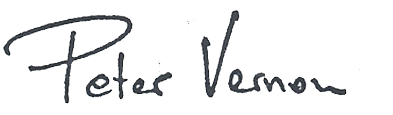 Peter Vernon